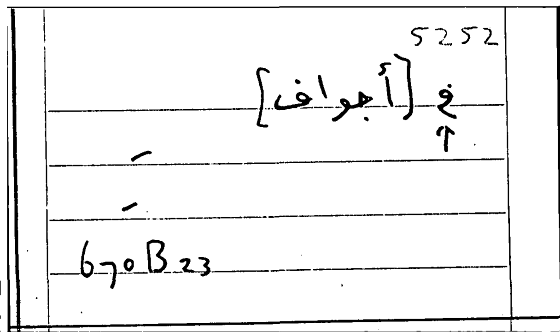 5252
في [أجواف]
↑
670B23